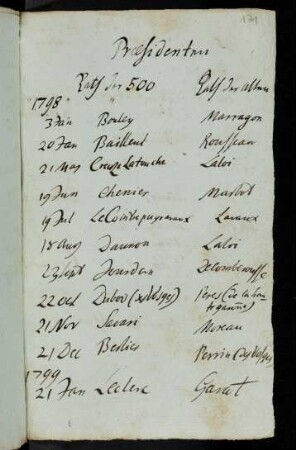 171
Præsidenten
Rath der 500 Rath der Alten
1798
3 Jan Boulay Marragon
20 Jan Bailleul Rousseau
21 May Creuzé Latouche Laloi
19 Jun Chenier Marbot
19 Jul LeCointe puyraveaux Laveaux
18 Aug Daunou Laloi
23 Sept Jourdan Decomberousse
22 Oct Dubois (des Vosges) Peres (de la haute
garonne)
21 Nov Savari Moreau
21 Dec Berlier Perrin (des Vosges)
1799
21 Jan Leclerc Garat